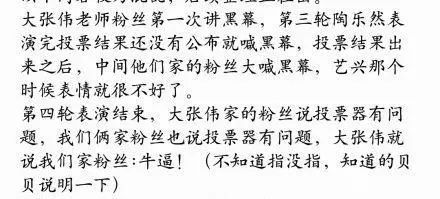 大张伟老师粉丝第一次讲黑幕，第三轮陶乐然表
演完投票结果还没有公布就喊黑幕，投票结果出
来之后，中间他们家的粉丝大喊黑幕，艺兴那个
时候表情就很不好了。
第四轮表演结束，大张伟家的粉丝说投票器有问
题，我们俩家粉丝也说投票器有问题，大张伟就
说我们家粉丝:牛逼！（不知道指没指，知道的贝
贝说明一下）